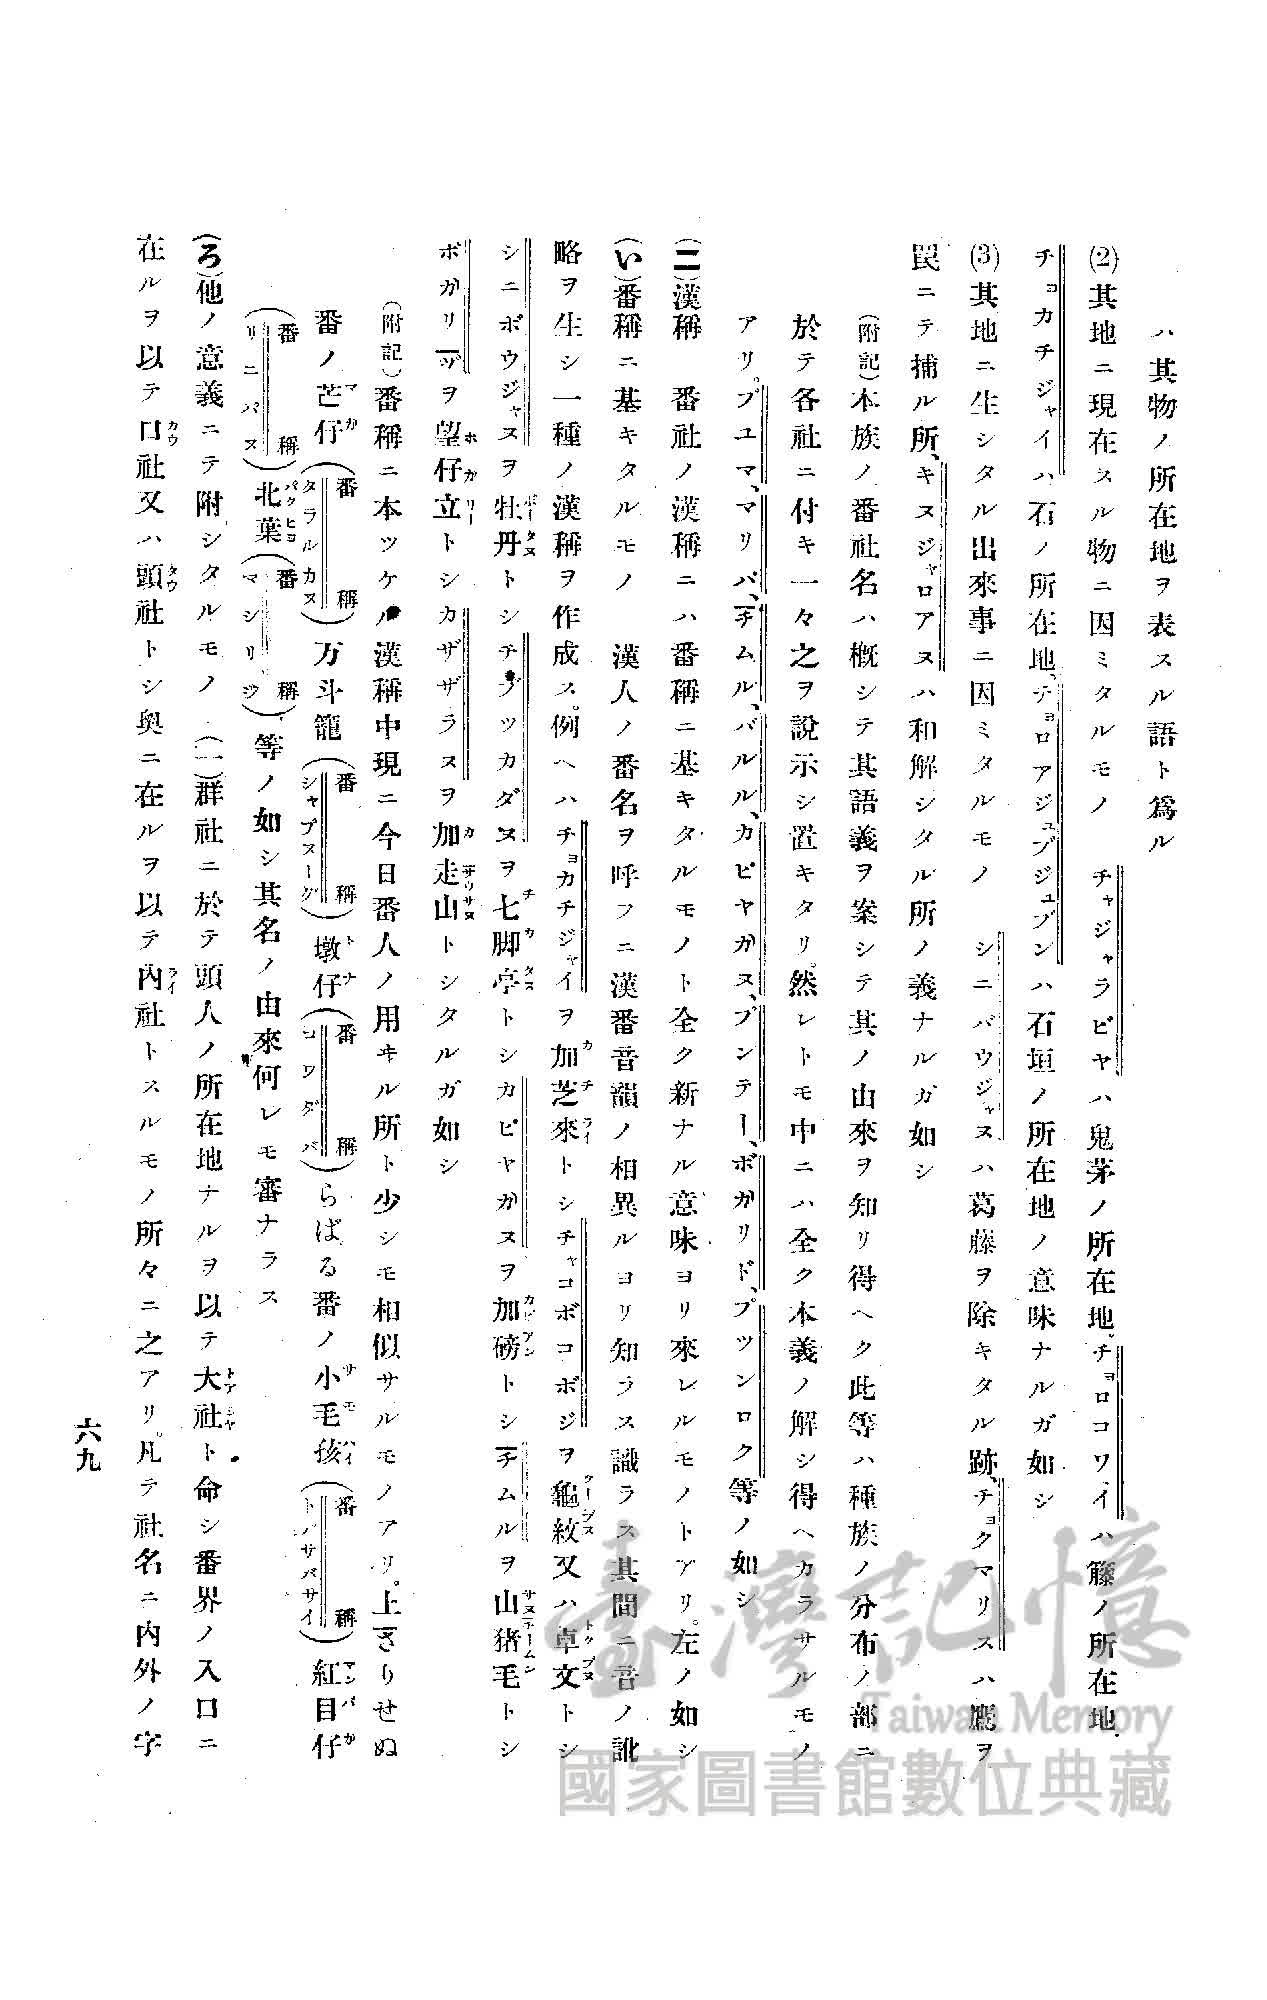 ハ其物ノ所在地ヲ表スル語ト爲ル
(2)其地ニ現在スル物ニ因ミタルモノ　チャジャラビヤハ鬼茅ノ所在地。チョロコワイハ籐ノ所在地、
チョカチジャイハ石ノ所在地、チョロアジュブジュブンハ石垣ノ所在地ノ意味ナルガ如シ
(3)其地ニ生シタル出來事ニ因ミタルモノ　シニバウジャヌハ葛藤ヲ除キタル跡、チョクマリスハ鷹ヲ
罠ニテ捕ル所、キスジャロアヌハ和解シタル所ノ義ナルガ如シ
(附記)本族ノ番社名ハ概シテ其語義ヲ案シテ其ノ由來ヲ知リ得ヘク此等ハ種族ノ分布ノ部ニ
於テ各社ニ付キ一々之ヲ說示シ置キタリ。然レトモ中ニハ全ク本義ノ解シ得ヘカラサルモノ
アリ。プユマ、マリバ、チムル、バルル、カピヤガヌ、ブンテー、ボガリド、プツンロク等ノ如シ
(二)漢稱　番社ノ漢稱ニハ番稱ニ基キタルモノト全ク新ナル意味ヨリ來レルモノトアリ。左ノ如シ
(い)番稱ニ基キタルモノ　漢人ノ番名ヲ呼フニ漢番音韻ノ相異ルヨリ知ラス識ラス其間ニ音ノ訛
略ヲ生シ一種ノ漢稱ヲ作成ス。例ヘハチョカチジャイヲ加芝來トシチャコボコボジヲ龜紋又ハ卓文トシ
シニボウジャヌヲ牡丹トシチブツカダヌヲ七脚亭トシカピヤガヌヲ加磅トシチムルヲ山猪毛トシ
ボガリヅヲ望仔立トシカザザラヌヲ加走山トシタルガ如シ
(附記)番稱ニ本ツケル漢稱中現ニ今日番人ノ用ヰル所ト少シモ相似サルモノアリ。上さりせぬ
番ノ芒仔(番稱タラルカヌ)万斗籠(番稱シャプヌーグ)墩仔(番稱コワダバ)らばる番ノ小毛孩(番稱トバサバサイ)紅目仔
(番稱リニバヌ)北葉(番稱マシリヅ)等ノ如シ其名ノ由來何レモ審ナラス
(ろ)他ノ意義ニテ附シタルモノ　(一)群社ニ於テ頭人ノ所在地ナルヲ以テ大社ト命シ番界ノ入口ニ
在ルヲ以テ口社又ハ頭社トシ奥ニ在ルヲ以テ內社トスルモノ所々ニ之アリ。凡テ社名ニ内外ノ字
六九
臺灣記憶
Taiwan Memory
國家圖書館數位典藏